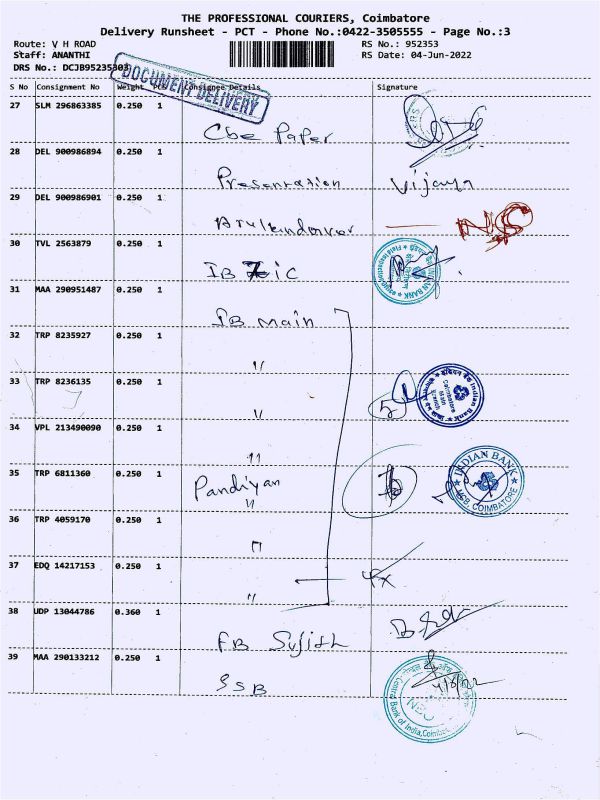 THE PROFESSIONAL COURIERS, Coimbatore
Delivery Runsheet - PCT - Phone No.:0422-3505555 - Page No.:3
Route: V H ROAD
RS No.: 952353
Staff: ANANTHI
RS Date: 04-Jun-2022
DRS No.: DCJB95235303
DOCUMENT DELIVERY
S No Consignment No Weight Pcs Consignee Details Signature
27 SLM 296863385 0.250 1
Cbe Paper
28 DEL 900986894 0.250 1
Presentation Vijaya
29 DEL 900986901 0.250 1
NS
30 TVL 2563879 0.250 1
IB ZIC
INDIAN BANK
31 MAA 290951487 0.250 1
IB Main
32 TRP 8235927 0.250 1
"
33 TRP 8236135 0.250 1
"
5
Coimbatore Main Branch
34 VPL 213490090 0.250 1
"
35 TRP 6811360 0.250 1
Pandiyan
"
INDIAN BANK
COIMBATORE
36 TRP 4059170 0.250 1
"
37 EDQ 14217153 0.250 1
"
38 UDP 13044786 0.360 1
FB Sujith
39 MAA 290133212 0.250 1
SSB
4/6/22
Central Bank of India, Coimbatore